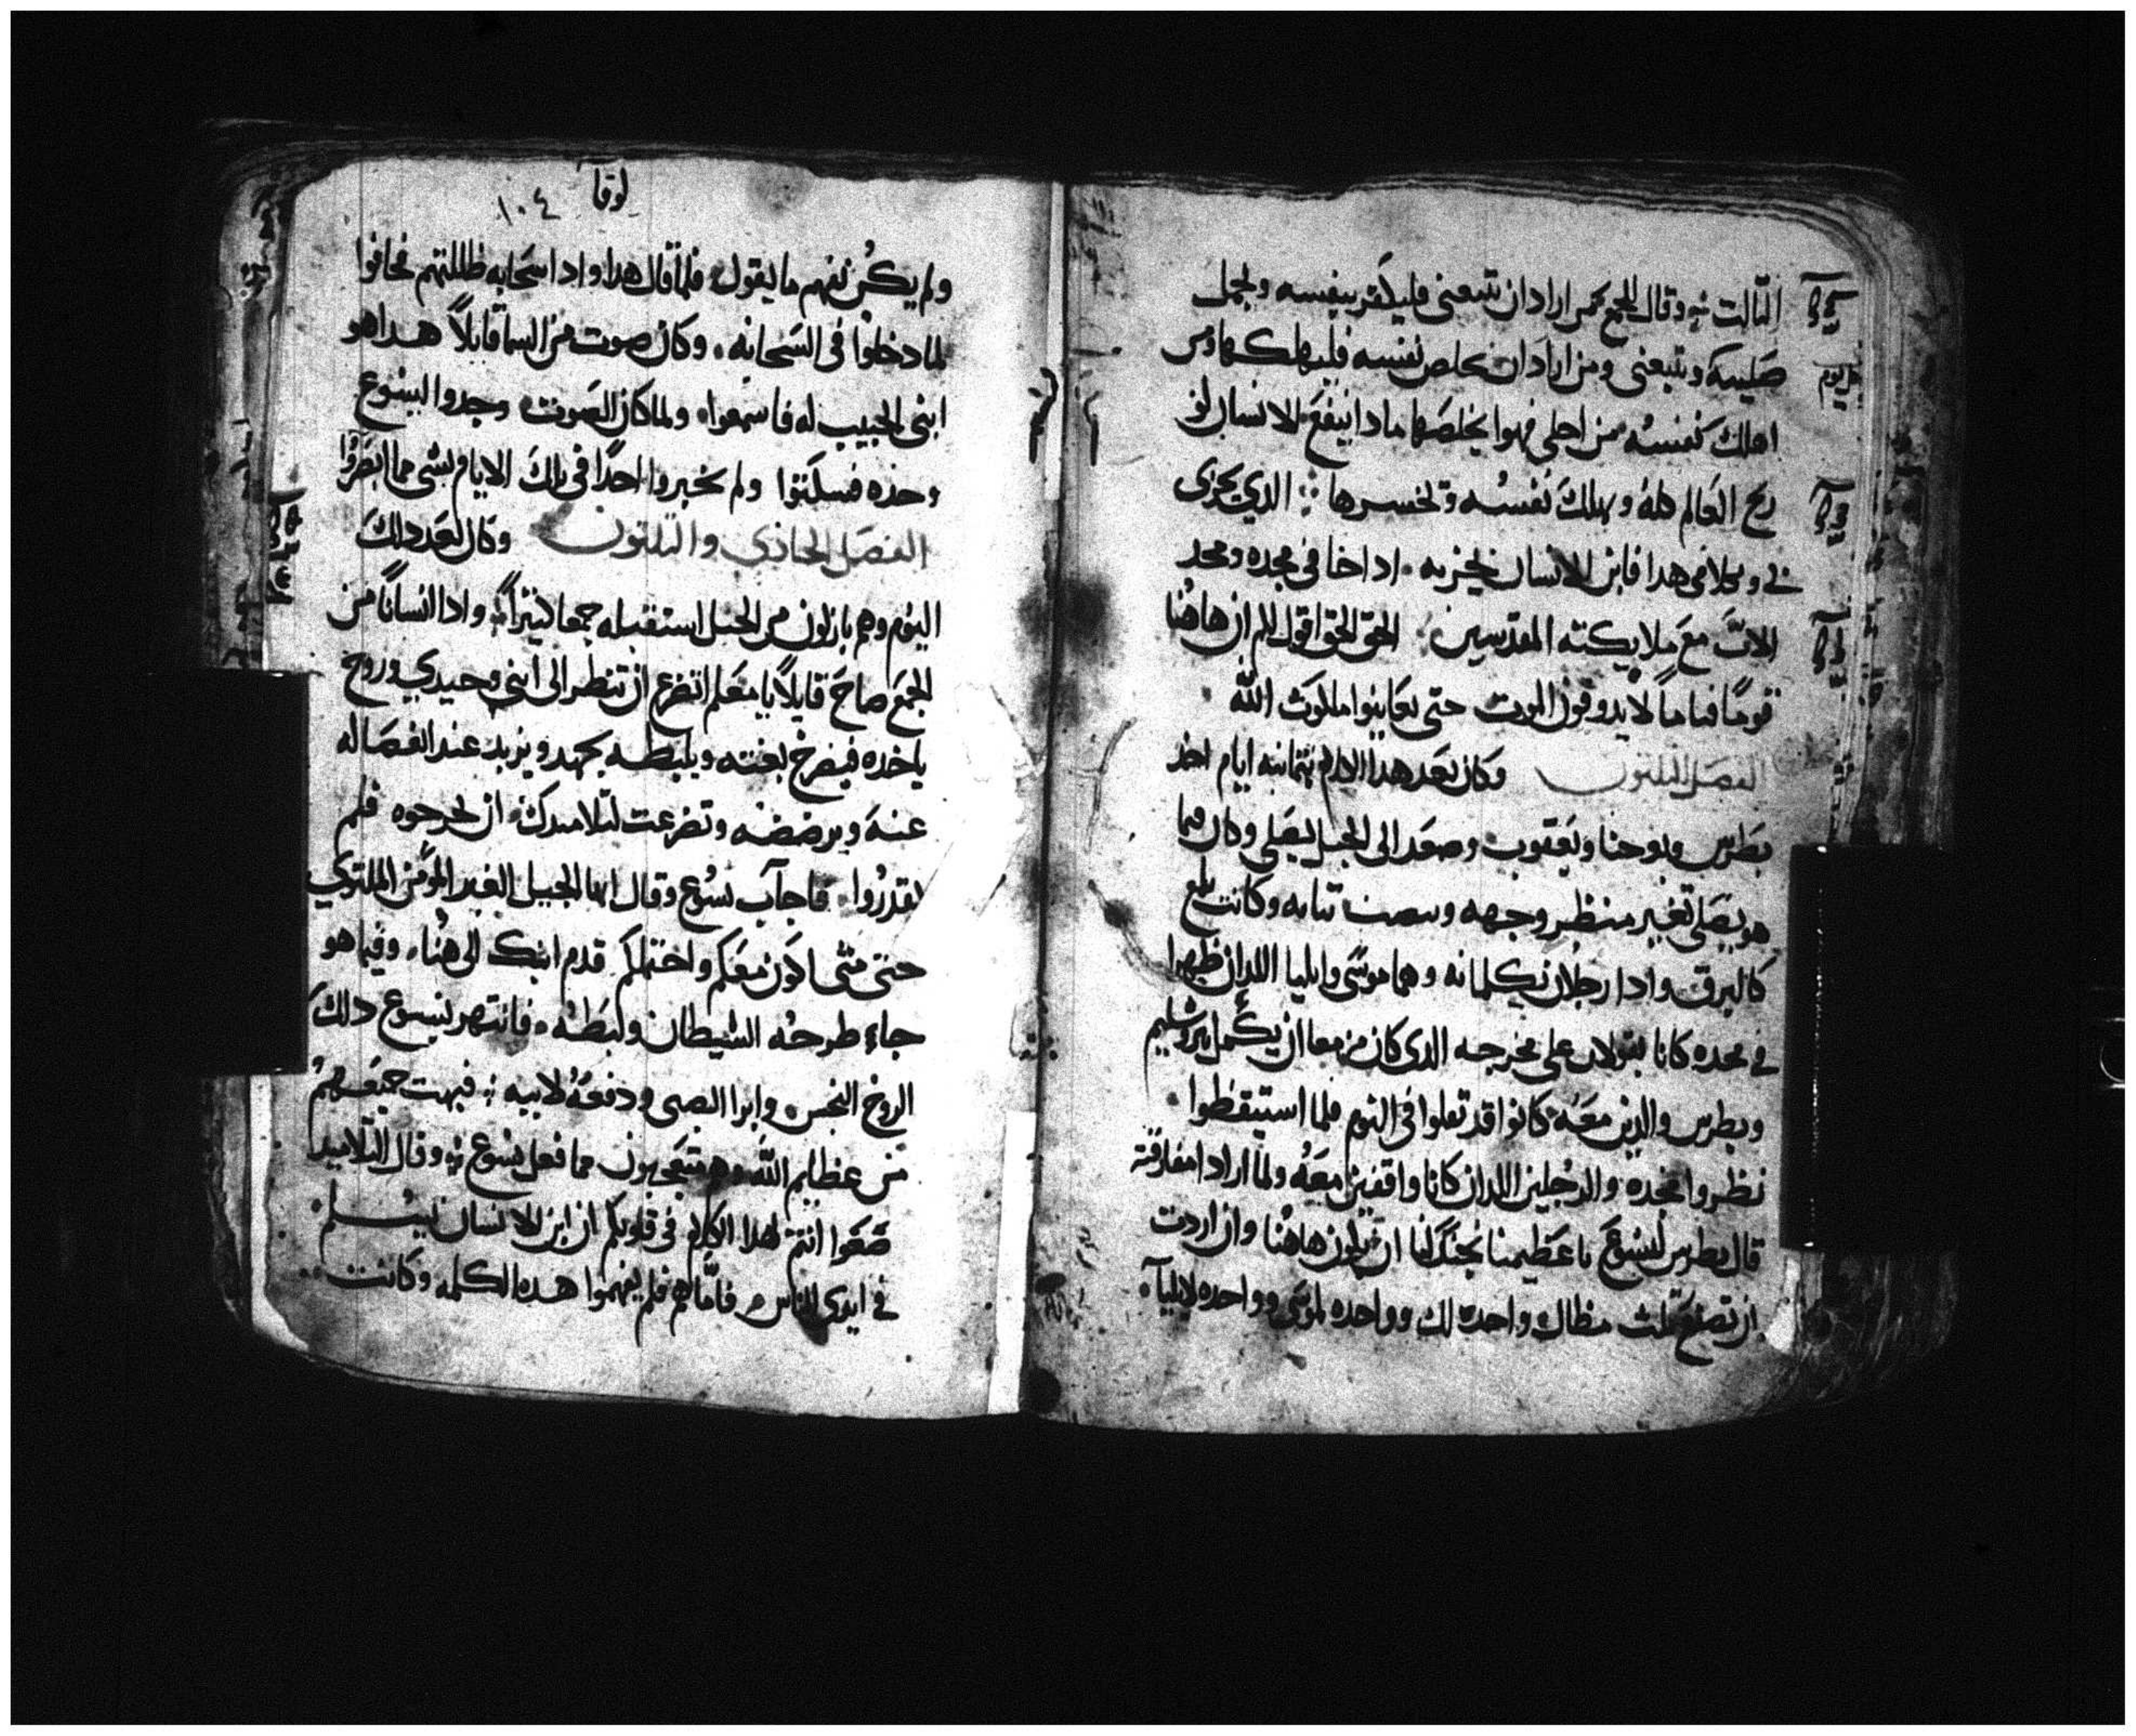 الثالث وقال للجمع من اراد ان يتبعني فليكفر بنفسه ويحمل
صليبه ويتبعني ومن اراد ان يخلص نفسه فليهلكها ومن
اهلك نفسه من اجلي فهوا يخلصها مادا ينفع الانسان لو
ربح العالم كله ويهلك نفسه وتخسرها الدي يخزى
بي وبكلامي هدا فابن الانسان يخزيه اداجا في مجده ومجد
الاب مع ملايكته المقدسين الحق الحق اقول لكم ان هاهنا
قوما قياما لا يدوقون الموت حتى يعاينوا ملكوت الله
الفصل الثلثون وكان بعد هدا الكلام بثمانيه ايام اخد
بطرس ويوحنا ويعقوب وصعد الى الجبل ليصلي وكان فيما
هو يصلي تغير منظر وجهه وبيضت ثيابه وكانت تلمع
كالبرق وادا رجلان يكلمانه وهما موسى وايليا اللدان ظهرا
في مجده كانا يقولان على مخرجه الدى كان مزمعا ان يكمل بيروشليم
وبطرس والدين معه كانوا قد تقلوا في النوم فلما استيقظوا
نظروا مجده والرجلين اللدان كانا واقفين معه ولما ارادا مفارقته
قال بطرس ليسوع يا عظيمنا يجب لنا ان نكون هاهنا وان اردت
ان تصنع ثلث مظال واحده لك وواحده لموسى وواحده لايليا
لوقا ١٠٤
ولم يكن يفهم ما يقول فلما قال هدا وادا سحابه ظللتهم فخافوا
لما دخلوا في السحابه وكان صوت من السما قايلاً هدا هو
ابني الحبيب له فاسمعوا ولما كان الصوت وجدوا ليسوع
وحده فسكتوا ولم يخبروا احداً في تلك الايام بشي مما ابصروا
الفصل الحادي والثلثون وكان بعد دلك
اليوم وهم نازلون من الجبل استقبله جمعا كثيراً وادا انساناً من
الجمع صاح قايلاً يا معلم اتضرع ان تنظر الى ابني وحيدي وروح
ياخده فيصرخ بغتة ويلبطه بجهد ويزبد عند انفصاله
عنه ويرضضه وتضرعت لتلاميدك ان يخرجوه فلم
يقدروا فاجاب يسوع وقال ايها الجيل الغير المومن الملتوي
حتى متى اكون معكم واحتملكم قدم ابنك الى هنا وفيما هو
جاء طرحه الشيطان ولبطه فانتهر يسوع دلك
الروح النجس وابرا الصبي ودفعه لابيه فبهت جميعهم
من عظايم الله وهم متعجبون مما فعل يسوع وقال لتلاميد
ضعوا انتم هدا الكلام في قلوبكم ان ابن الانسان يسلم
في ايدى الناس فاما هم فلم يفهموا هده الكلمه وكانت